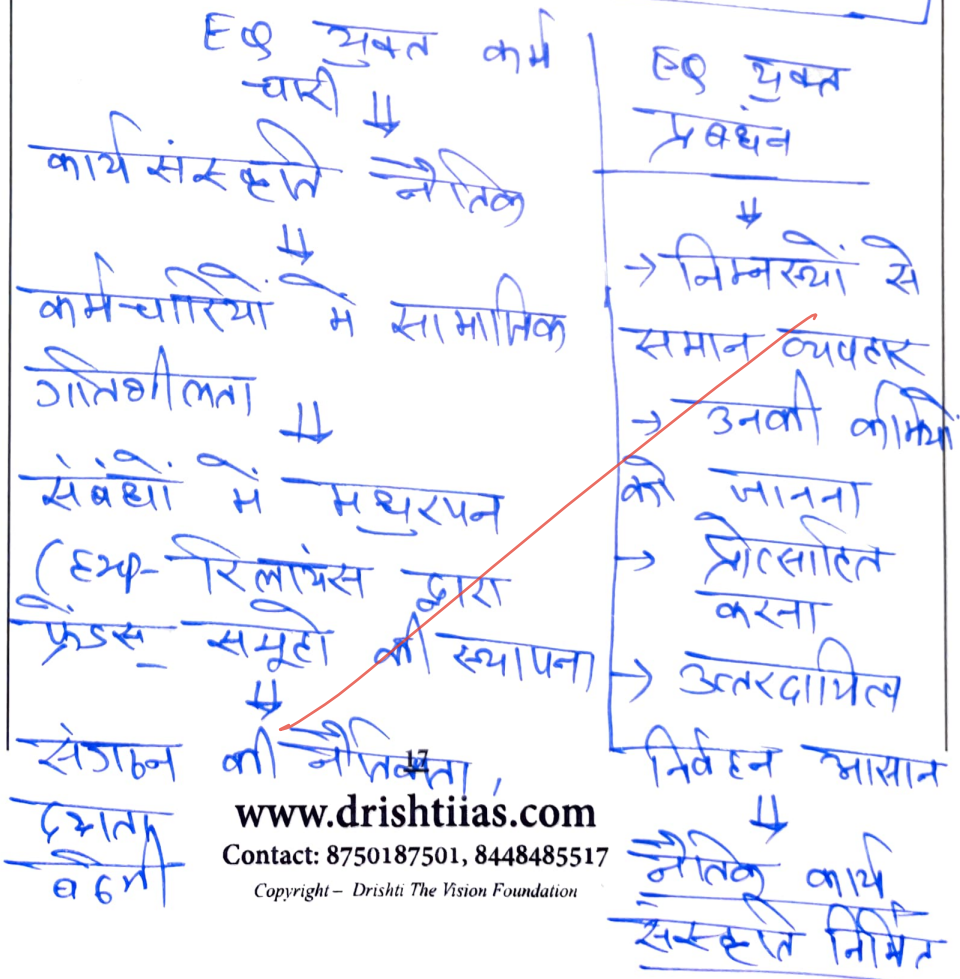 EQ युक्त कर्म
चारी
⇓
कार्य संस्कृति नैतिक
⇓
कर्मचारियों में सामाजिक
गतिशीलता
⇓
संबंधों में मधुरपन
(Exp- रिलायंस द्वारा
फ्रेंडस समूहो की स्थापना
⇓
संगठन की नैतिकता,
दक्षता
बढेगी
EQ युक्त
प्रबंधन
⇓
→ निम्नस्थों से
समान व्यवहार
→ उनकी कमियों
को जानना
→ प्रोत्साहित
करना
→ उत्तरदायित्व
निर्वहन आसान
⇓
नैतिक कार्य
संस्कृति निर्मित
17
www.drishtiias.com
Contact: 8750187501, 8448485517
Copyright – Drishti The Vision Foundation